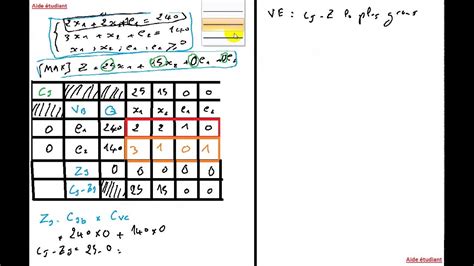 Aide étudiant
2x1 + 2x2 + e1 = 240
3x1 + x2 + e2 = 140
x1, x2, e1, e2 ≥ 0
[MAX] Z = 25x1 + 15x2 + 0e1 + 0e2
Cj 25 15 0 0
VB Q x1 x2 e1 e2
0 e1 240 2 2 1 0
0 e2 140 3 1 0 1
Zj 0 0 0 0
Cj-Zj 25 15 0 0
Zj = CVB x
= 240x0 + 140x0
Cj-Zj = 25-0 =
VE : Cj-Z le plus grand
Aide étudiant